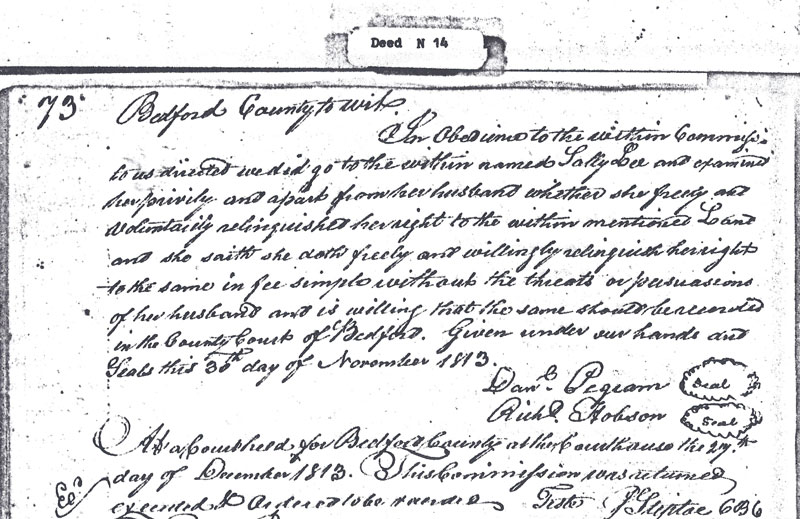 Deed N 14
73
Bedford County to wit.
In Obedience to the within Commiss:
to us directed we did go to the within named Sally Lee and examined
her privily and apart from her husband whether she freely and
voluntarily relinquished her right to the within mentioned Land
and she saith she doth freely and willingly relinquish her right
to the same in fee simple without the threats or persuasions
of her husband and is willing that the same should be recorded
in the County Court of Bedford. Given under our hands and
Seals this 30th day of November 1813.
Danl. Pegram Seal
Richd. Hobson Seal
At a Court held for Bedford County at the Courthouse the 27th
day of December 1813. This Commission was returned
executed & Ordered to be recorded
Teste J Steptoe CBC